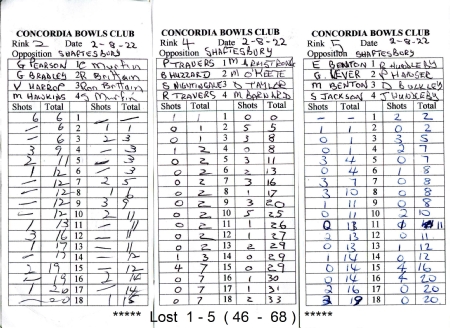 CONCORDIA BOWLS CLUB
Rink 2 Date 2-8-22
Opposition SHAFTESBURY
G PEARSON 1 C Martin
G BRADLEY 2 R Brittain
V HARROP 3 Ron Brittain
M HAWKINS 4 S Martin
Shots Total Shots Total
6 6 1 — —
— 6 2 1 1
— 6 3 2 3
3 9 4 — —
2 11 5 — 3
1 12 6 — —
— 12 7 2 5
— 12 8 1 6
— 12 9 3 9
— 12 10 2 11
1 13 11 — 11
3 16 12 — 11
1 17 13 — 11
— 17 14 — 12
2 19 15 — 12
— 19 16 2 14
1 20 17 — 14
— 20 18 1 15
CONCORDIA BOWLS CLUB
Rink 4 Date 2-8-22
Opposition SHAFTESBURY
P TRAVERS 1 M ARMSTRONG
B HUZZARD 2 M O'KEETE
S NIGHTINGALE 3 D TAYLOR
R TRAVERS 4 M BARNARD
Shots Total Shots Total
1 1 1 0 0
0 1 2 5 5
0 1 3 3 8
1 2 4 0 8
0 2 5 3 11
0 2 6 2 13
0 2 7 3 16
0 2 8 1 17
0 2 9 3 20
0 2 10 5 25
0 2 11 1 26
0 2 12 1 27
0 2 13 2 29
1 3 14 0 29
4 7 15 0 29
0 7 16 1 30
0 7 17 1 31
0 7 18 2 33
CONCORDIA BOWLS CLUB
Rink 5 Date 2-8-22
Opposition SHAFTESBURY
E BENTON 1 R HUNDLEBY
G LEVER 2 P HANGER
M BENTON 3 D BUCKLEY
S JACKSON 4 J HUNDLEBY
Shots Total Shots Total
– – 1 2 2
1 1 2 0 2
0 1 3 3 5
0 1 4 2 7
3 4 5 0 7
0 4 6 1 8
3 7 7 0 8
3 10 8 0 8
1 11 9 0 8
0 11 10 2 10
2 13 11 11
0 13 12 0 11
0 13 13 1 12
1 14 14 0 12
0 14 15 4 16
0 14 16 4 20
2 16 17 0 20
3 19 18 0 20
***** Lost 1 - 5 ( 46 - 68 ) *****